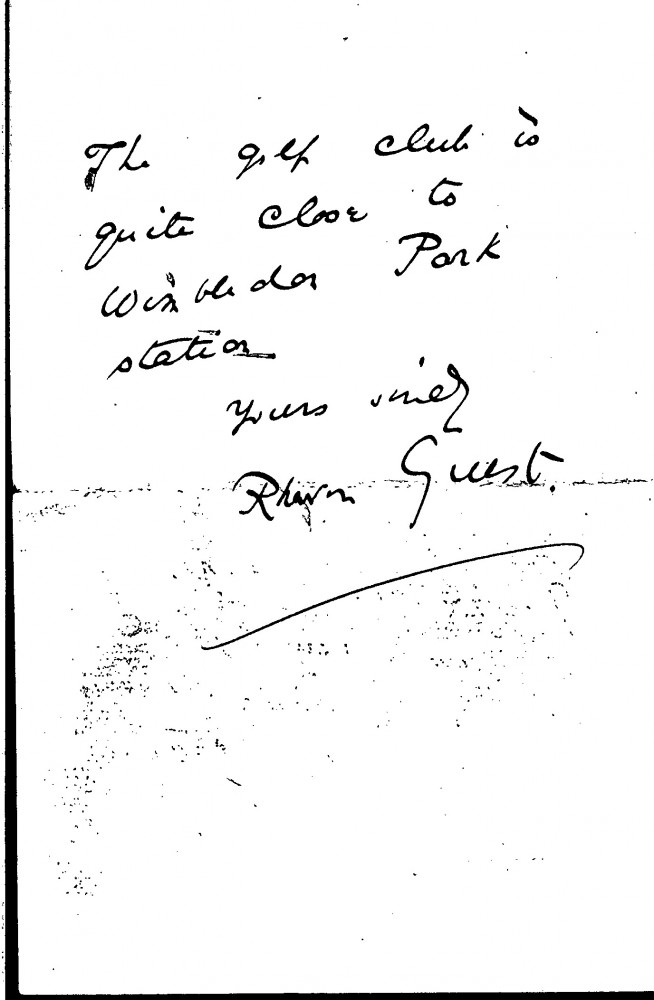 The golf club is
quite close to
Wimbledon Park
station
Yours
Guest.